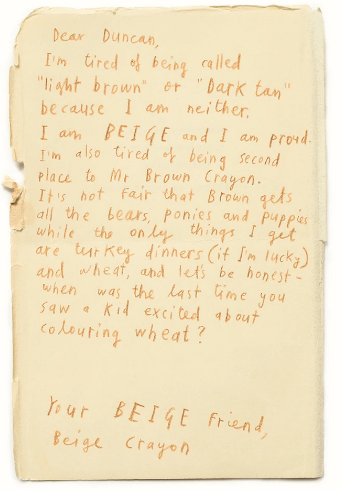 Dear Duncan,
I'm tired of being called
"light brown" or "Dark tan"
because I am neither.
I am BEIGE and I am proud.
I'm also tired of being second
place to Mr Brown Crayon.
It's not fair that Brown gets
all the bears, ponies and puppies
while the only things I get
are turkey dinners (if I'm lucky)
and wheat, and let's be honest-
when was the last time you
saw a kid excited about
colouring wheat?
Your BEIGE friend,
Beige Crayon